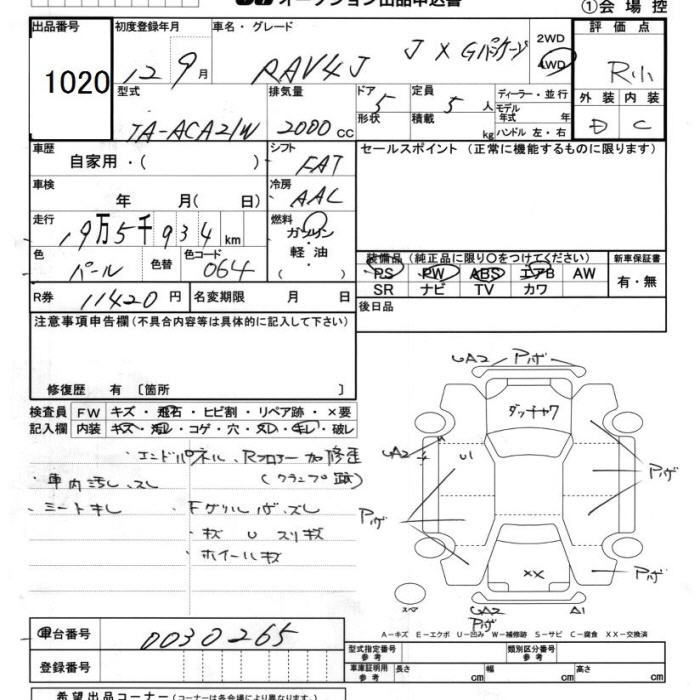 オークション出品申込書
①会場控
出品番号
1020
初度登録年月
12 9月
車名・グレード
RAV4J J X Gパッケージ
2WD
4WD
評価点
R小
型式
TA-ACA21W
排気量
2000cc
ドア
5
形状
定員
5人
積載
kg
ディーラー・並行
モデル
年式 年
ハンドル 左・右
外装
D
内装
C
車歴
自家用・( )
シフト
FAT
セールスポイント (正常に機能するものに限ります)
車検
年 月( 日)
冷房
AAC
走行
19万5千934km
燃料
ガソリン
軽油
( )
色
パール
色替
色コード
064
装備品 (純正品に限り○をつけてください)
PS PW ABS エアB AW
SR ナビ TV カワ
新車保証書
有・無
R券
11420円
名変期限 月 日
後日品
注意事項申告欄(不具合内容等は具体的に記入して下さい)
修復歴 有 〔箇所 〕
検査員
記入欄
FW キズ・飛石・ヒビ割・リペア跡・×要
内装 キズ・汚レ・コゲ・穴・スレ・キレ・破レ
・エンドパネル、Rフロアー加修歪
(クランプ跡)
・車内汚レ、スレ
・シートキレ
・Fグリルハゲ、ズレ
・キズ U スリキズ
・ホイールキズ
UA2 Pハゲ
ダッチャワ
UA2
U1
Pハゲ
Pハゲ
××
Pハゲ
スペア
UA2
Pハゲ
A1
A－キズ E－エクボ U－凹み W－補修跡 S－サビ C－腐食 XX－交換済
車台番号
0030265
登録番号
型式指定番号
参考
類別区分番号
参考
車庫証明用
参考
長さ cm
幅 cm
高さ cm
希望出品コーナー(コーナーは各会場により異なります。)